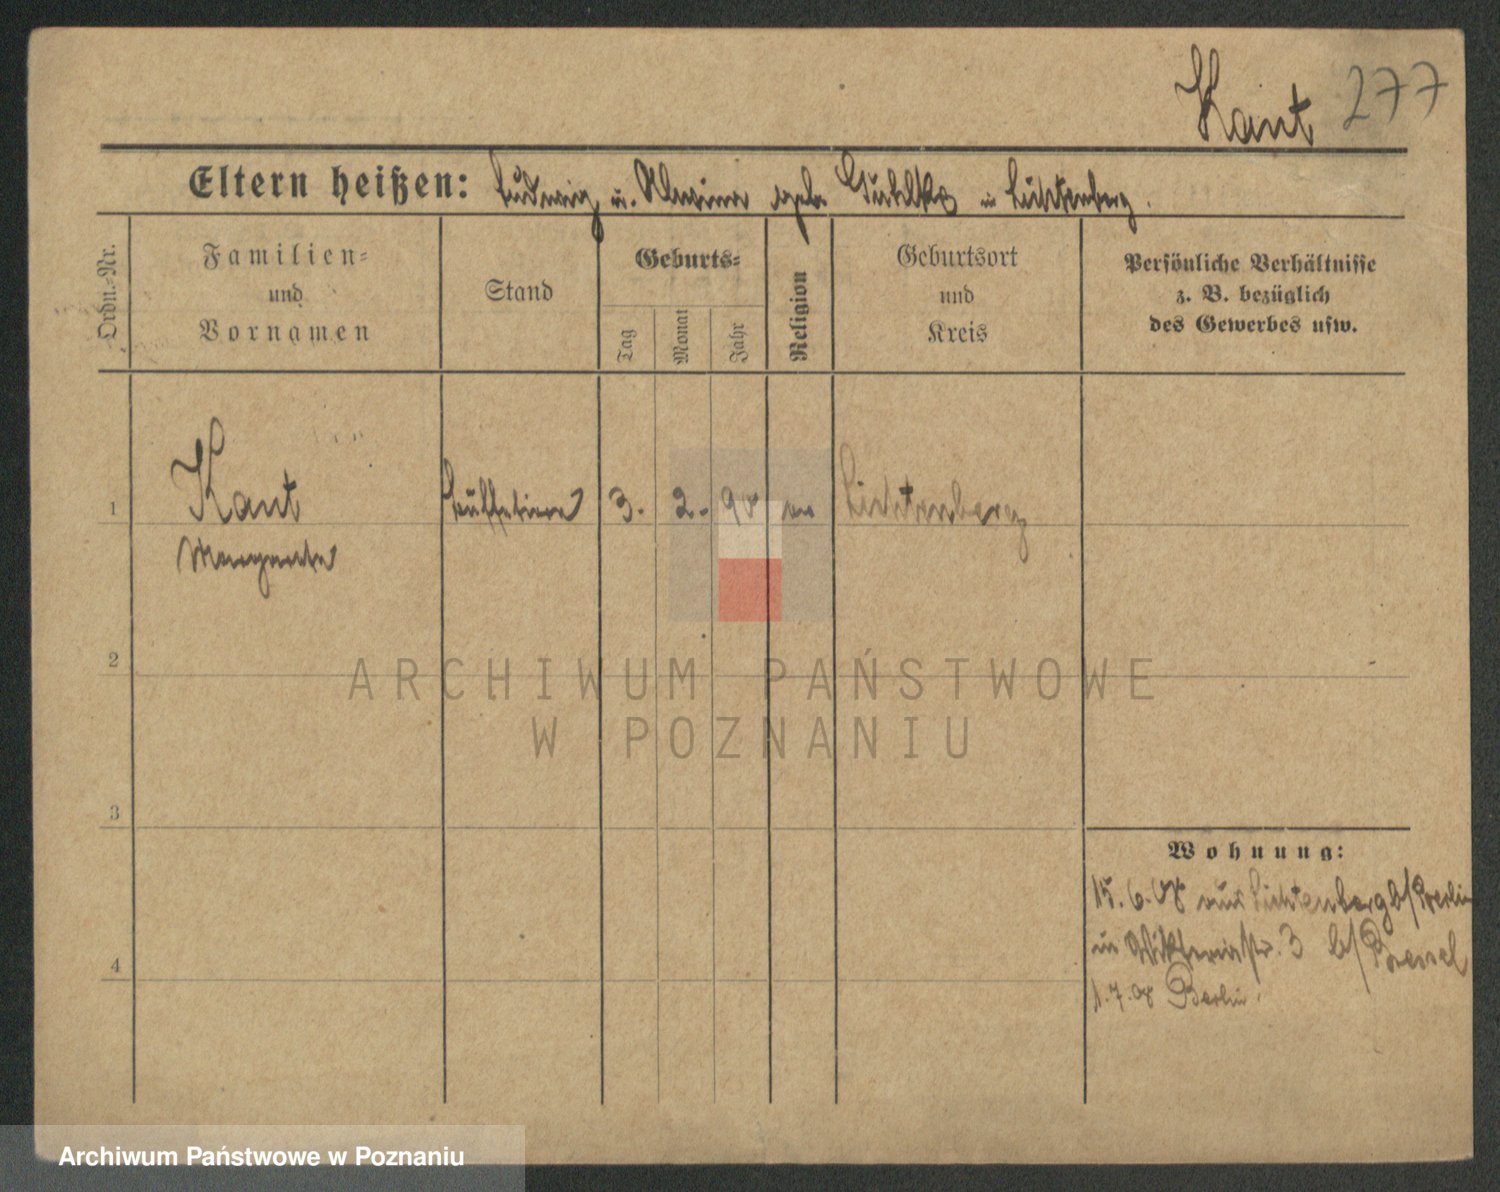 Kant 277
Eltern heißen: Ludwig u. geb. in Lichtenberg.
Ordn.-Nr.
Familien-
und
Vornamen
Stand
Geburts-
Tag
Monat
Jahr
Religion
Geburtsort
und
Kreis
Persönliche Verhältnisse
z. B. bezüglich
des Gewerbes usw.
1 Kant Büffetiere 3. 2. 90 ev Lichtenberg
Margarete
2
ARCHIWUM PAŃSTWOWE
W POZNANIU
3
Wohnung:
15.6.08 aus Lichtenberg b/Berlin
in Viktoriastr. 3 b/
4
1.7.08 Berlin.
Archiwum Państwowe w Poznaniu